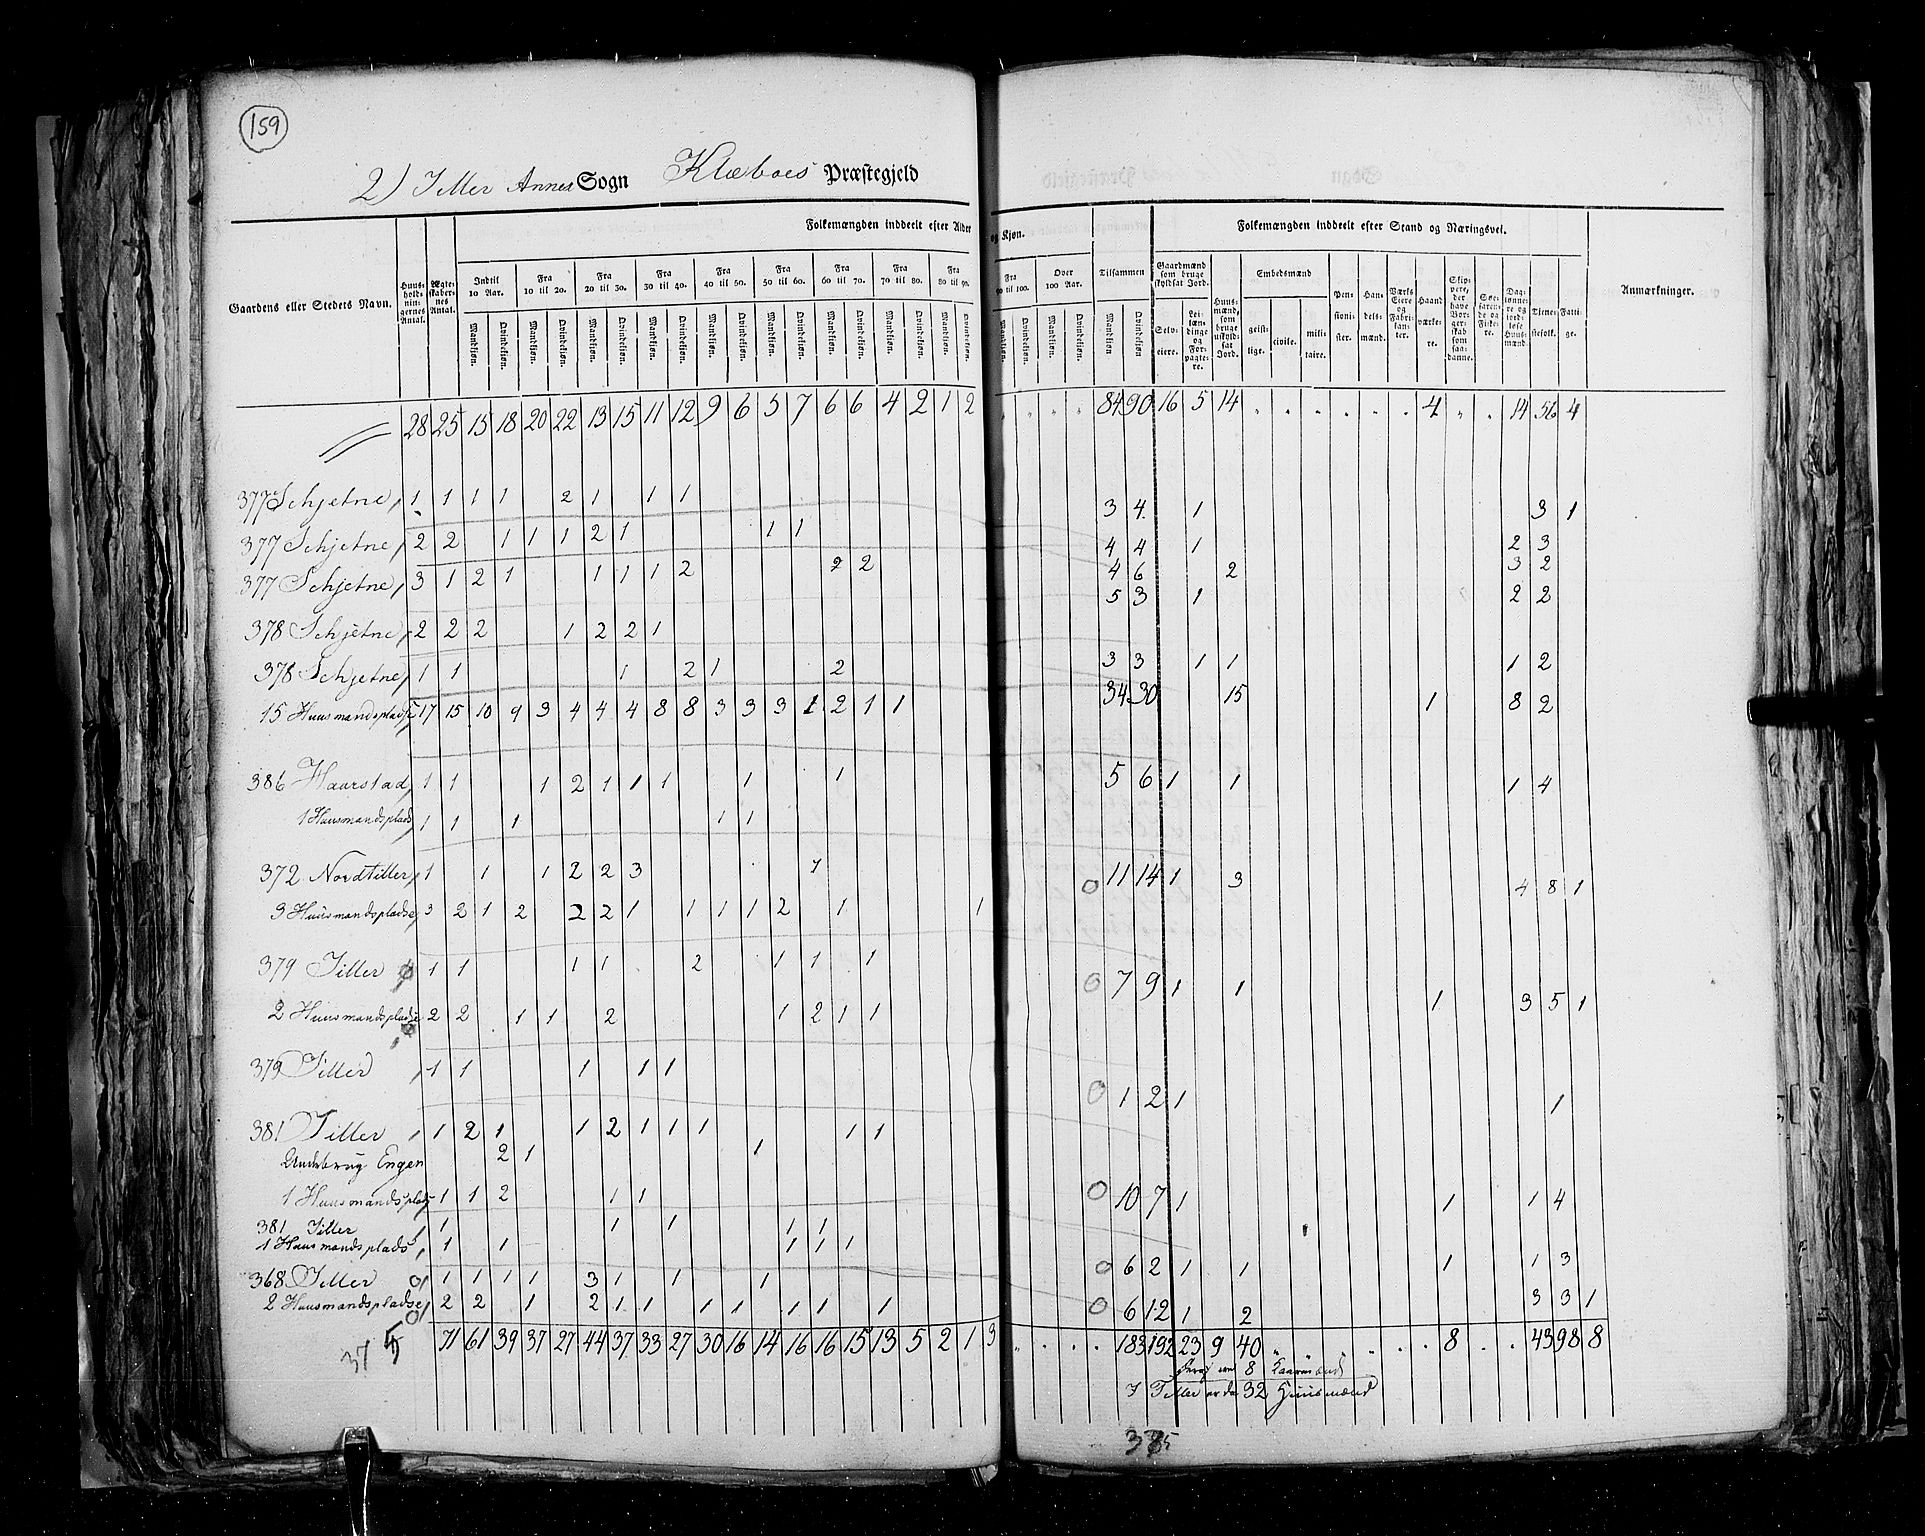 159
2) Tiller Annex Sogn Klæboes Præstegjeld
Folkemængden inddeelt efter Alder og Kjøn.
Folkemængden inddeelt efter Stand og Næringsvei.
Gaardens eller Stedets Navn.
Huusholdningernes Antal.
Ægteskabernes Antal.
Indtil 10 Aar.
Fra 10 til 20.
Fra 20 til 30.
Fra 30 til 40.
Fra 40 til 50.
Fra 50 til 60.
Fra 60 til 70.
Fra 70 til 80.
Fra 80 til 90.
Fra 90 til 100.
Over 100 Aar.
Tilsammen
Mandkiøn. Qvindekiøn.
Gaardmænd som bruge skyldsat Jord.
Selveiere.
Leilændinge og Forpagtere.
Huusmænd, som bruge uskyldsat Jord.
Embedsmænd
geistlige. civile. militaire.
Pensionister.
Handelsmænd.
Værks Eiere og Fabrikanter.
Haandværkere.
Skippere, der have Borgerskab som saadanne.
Søefarende og Fiskere.
Daglønnere og inderlöse Huusmænd.
Tjenestefolk.
Fattige.
Anmærkninger.
28 25 15 18 20 22 13 15 11 12 9 6 5 7 6 6 4 2 1 2 84 90 16 5 14 4 14 56 4
377 Schjetne, 1 1 1 1 2 1 1 1 3 4 1 3 1
377 Schjetne, 2 2 1 1 1 2 1 1 1 4 4 1 2 3
377 Schjetne, 3 1 2 1 1 1 1 2 2 2 4 6 2 3 2
378 Schjetne, 2 2 2 1 2 2 1 5 3 1 2 2
378 Schjetne, 1 1 1 2 1 2 3 3 1 1 1 2
15 Huusmandspladse 17 15 10 9 3 4 4 4 8 8 3 3 3 1 2 1 1 34 30 15 1 8 2
386 Haarstad, 1 1 1 2 1 1 1 1 1 5 6 1 1 1 4
1 Huusmandsplads, 1 1 1 1 1
372 Nordtiller, 1 1 1 2 2 3 1 0 11 14 1 3 4 8 1
3 Huusmandspladse, 3 2 1 2 2 2 1 1 1 1 2 1 1
379 Tiller 1 1 1 1 2 1 1 1 0 7 9 1 1 1 3 5 1
2 Huusmandspladse 2 2 1 1 2 1 2 1 1
379 Tiller , 1 1 1 1 1 0 1 2 1 1
381 Tiller , 1 2 1 1 2 1 1 1 1 1
Underbrug Engen 2 1 1
1 Huusmandsplads 1 1 2 1 1 0 10 7 1 1 1 4
381 Tiller , 1 1 1 1 1
1 Huusmandsplads, 1 1 1 1 1 0 6 2 1 1 1 1 3
368 Tiller 0, 1 1 1 1 3 1 1 1
2 Huusmandspladse, 0 2 2 1 2 1 1 1 1 1 1 1 0 6 12 1 2 3 3 1
71 61 39 37 27 44 37 33 27 30 16 14 16 16 15 13 5 2 1 3 183 192 23 9 40 8 43 98 8
37 5
8 Kaarmænd
I Tiller er da 32 Huusmænd
375